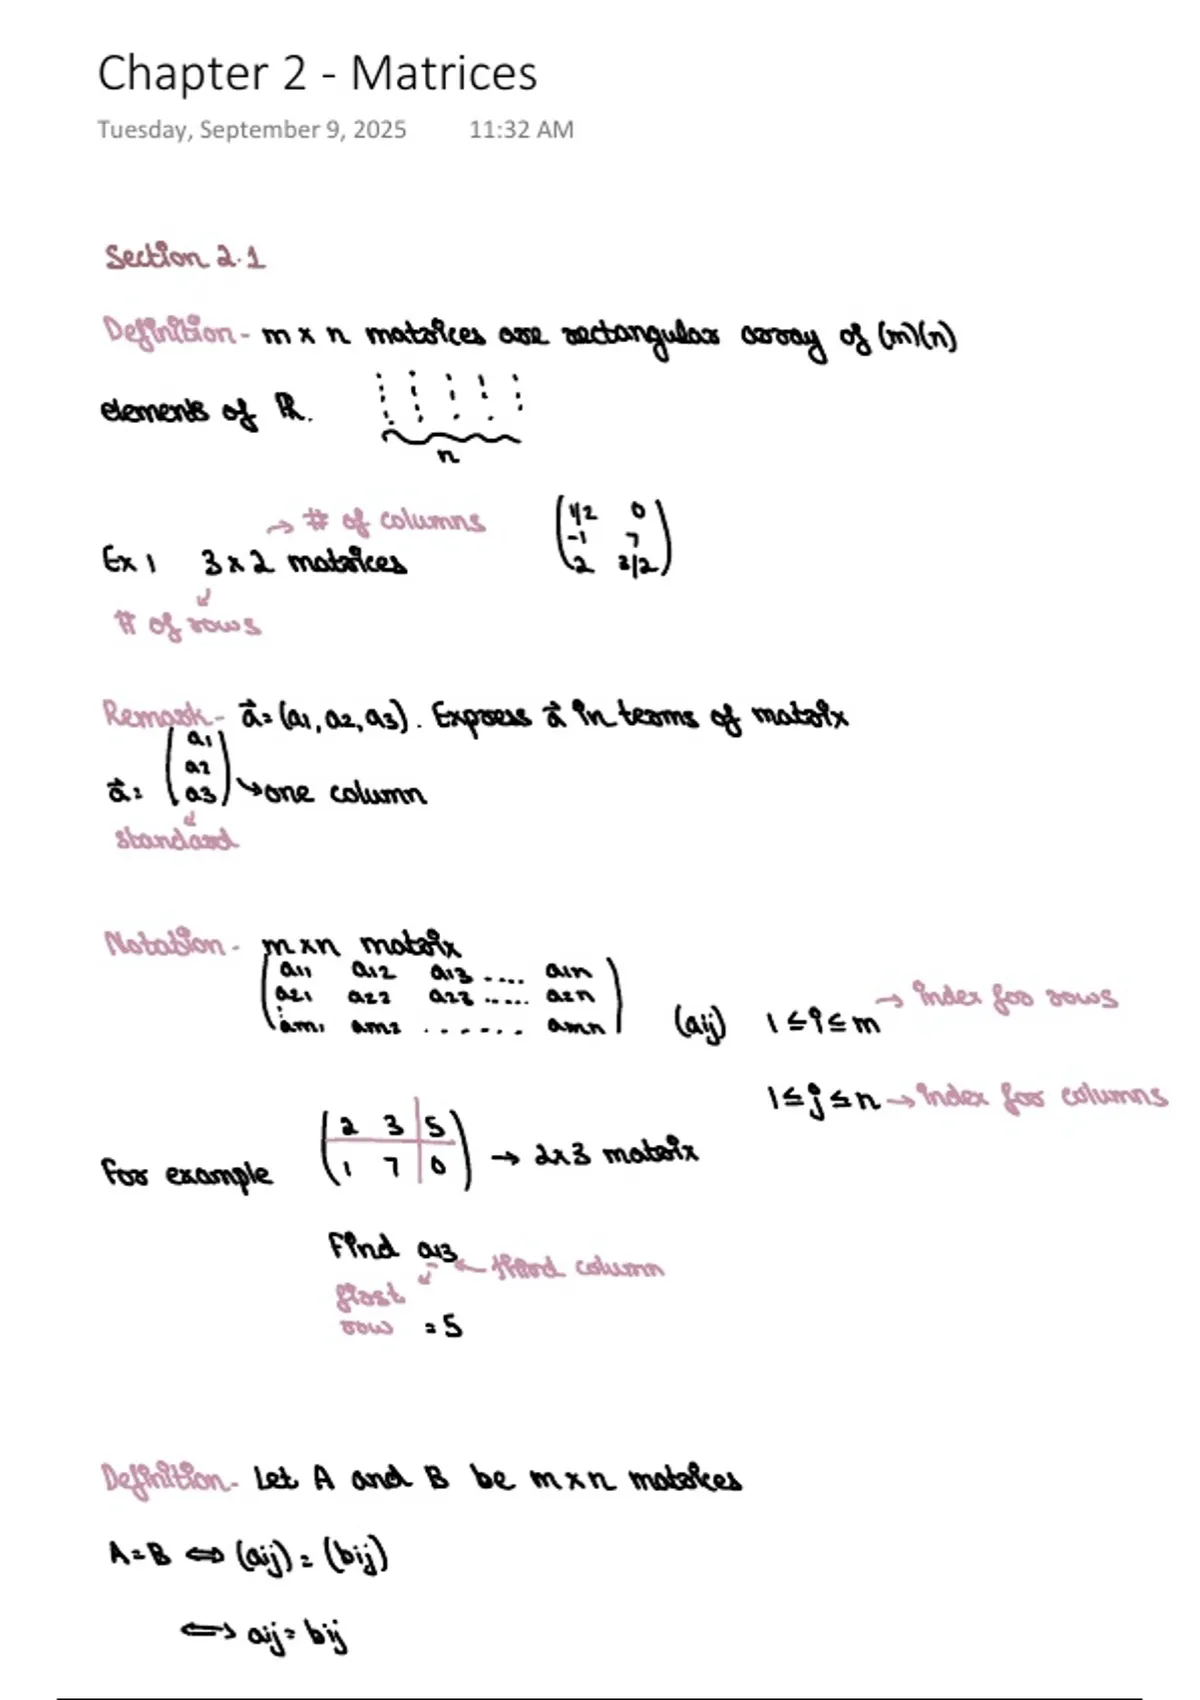 Chapter 2 - Matrices
Tuesday, September 9, 2025 11:32 AM
Section 2.1
Definition - m x n matrices are rectangular array of (m)(n)
elements of ℝ.
n
→ # of columns
Ex 1 3 x 2 matrices
# of rows
1/2 0
-1 7
2 3/2
Remark - a⃗ = (a1, a2, a3). Express a⃗ in terms of matrix
a1
a2
a⃗ = a3 ↘ one column
standard
Notation - m x n matrix
a11 a12 a13 .... a1n
a21 a22 a23 ..... a2n
am1 am2 ....... amn
(aij) 1 ≤ i ≤ m → index for rows
1 ≤ j ≤ n → index for columns
2 3 5
1 7 0
For example → 2x3 matrix
Find a13 ← third column
first
row = 5
Definition - Let A and B be m x n matrices
A = B ⟺ (aij) = (bij)
⟺ aij = bij